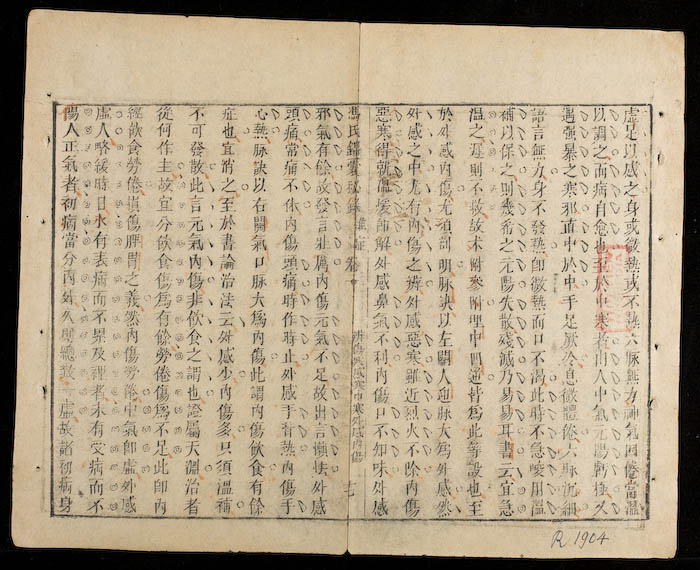 虛足以感之身或發熱或不熱六脉無力神氣困倦當溫
以調之而病自愈也至於中寒者由人中氣元陽虧極久
遇强暴之寒邪直中於中手足厥冷息微體倦六脉沉細
語言無力身不發熱卽微熱而口不渴此時不急峻用溫
補以保之則幾希之元陽失散殘滅乃易易耳書云宜急
溫之遲則不救故术附參附理中四逆皆爲此等設也至
於外感內傷尤須剖明脉訣以左關人迎脉大爲外感然
外感之中尤有內傷之辨外感惡寒雖近烈火不除內傷
惡寒得就溫煖卽解外感鼻氣不利內傷口不知味外感
馮氏錦囊秘錄 雜症 卷十 辨傷寒感寒中寒外感內傷 十七
邪氣有餘故發言壯厲內傷元氣不足故出言懶怯外感
頭痛常痛不休內傷頭痛時作時止外感手背熱內傷手
心熱脉訣以右關氣口脉大爲內傷此謂內傷飲食有餘
症也宜消之至於書論治法云外感少內傷多只須溫補
不可發散此言元氣內傷非飲食之謂也證屬天淵治者
從何作主故宜分飲食傷爲有餘勞倦傷爲不足此卽內
經飲食勞倦損傷脾胃之義然內傷勞倦中氣卽虛外感
虛人略緩時日亦有表病而不暴及裡者未有受病而不
傷人正氣者初病當分內外久則總歸一虛故諸初病身
R 1904